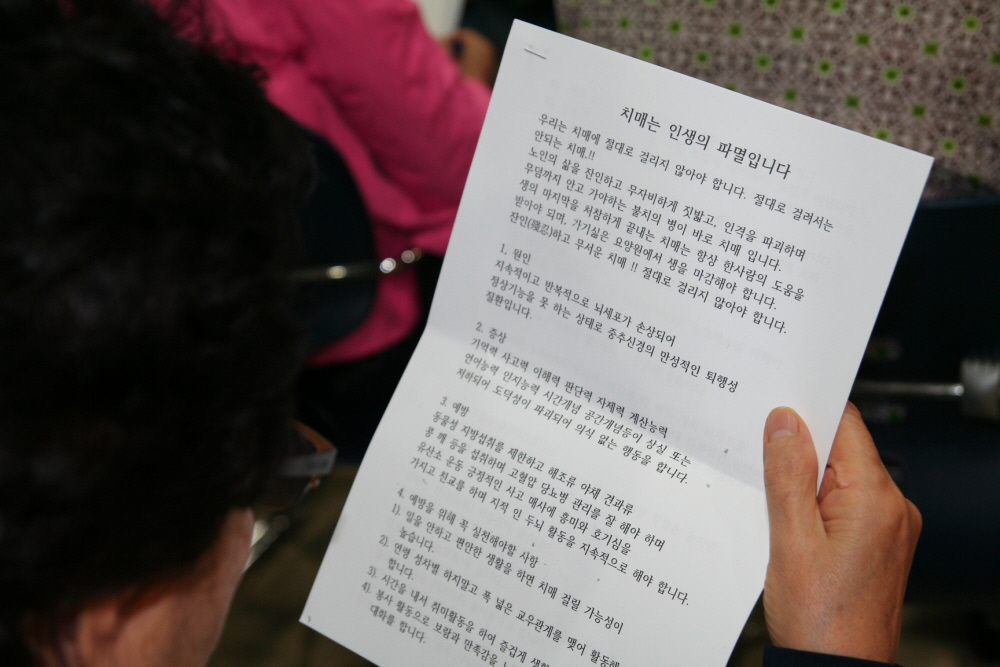 치매는 인생의 파멸입니다
우리는 치매에 절대로 걸리지 않아야 합니다. 절대로 걸려서는
안되는 치매.!!
노인의 삶을 잔인하고 무자비하게 짓밟고, 인격을 파괴하며
무덤까지 안고 가야하는 불치의 병이 바로 치매 입니다.
생의 마지막을 처참하게 끝내는 치매는 항상 한사람의 도움을
받아야 되며, 가기싫은 요양원에서 생을 마감해야 합니다.
잔인(殘忍)하고 무서운 치매 !! 절대로 걸리지 않아야 합니다.
1. 원인
지속적이고 반복적으로 뇌세포가 손상되어
정상기능을 못 하는 상태로 중추신경의 만성적인 퇴행성
질환입니다.
2. 증상
기억력 사고력 이해력 판단력 자제력 계산능력
언어능력 인지능력 시간개념 공간개념등이 상실 또는
저하되어 도덕성이 파괴되어 의식 없는 행동을 합니다.
3. 예방
동물성 지방섭취를 제한하고 해조류 야채 견과류
콩 깨 등을 섭취하며 고혈압 당뇨병 관리를 잘 해야 하며
유산소 운동 긍정적인 사고 매사에 흥미와 호기심을
가지고 친교를 하며 지적 인 두뇌 활동을 지속적으로 해야 합니다.
4. 예방을 위해 꼭 실천해야할 사항
1). 일을 안하고 편안한 생활을 하면 치매 걸릴 가능성이
높습니다.
2). 연령 성차별 하지말고 폭 넓은 교우관계를 맺어 활동해
합니다.
3). 시간을 내서 취미활동을 하여 즐겁게
4). 봉사 활동으로 보람과 만족감을
대화를 합니다.